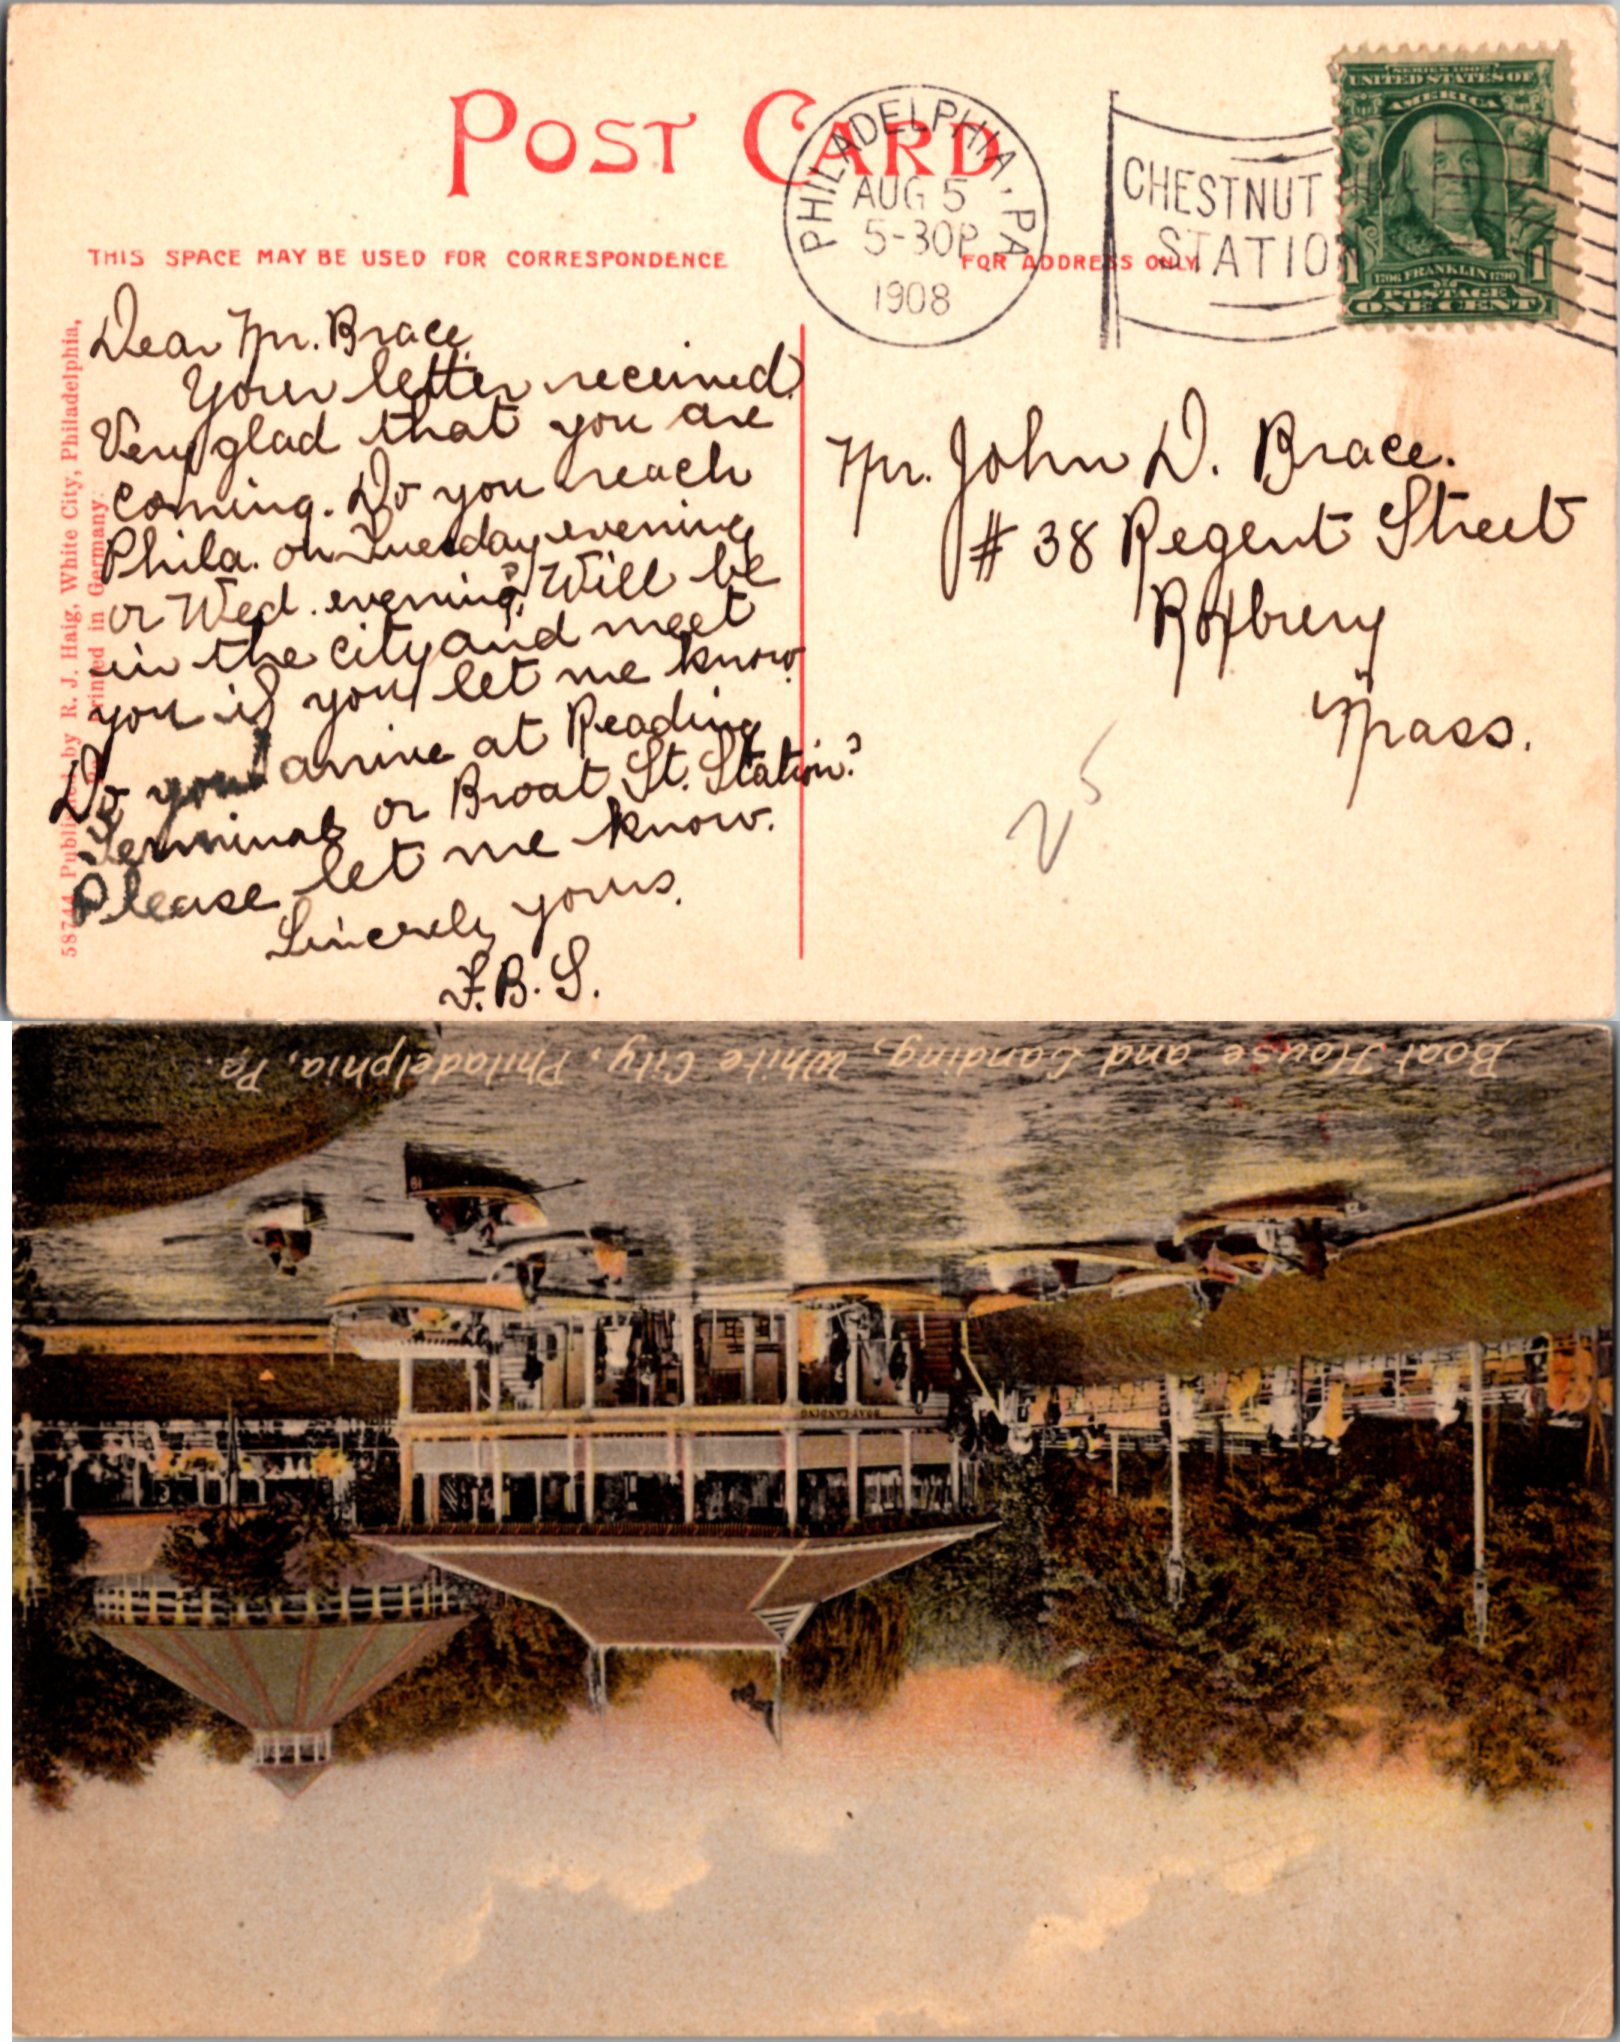 POST CARD
THIS SPACE MAY BE USED FOR CORRESPONDENCE
FOR ADDRESS ONLY
PHILADELPHIA, PA
AUG 5
5-30P
1908
CHESTNUT
STATIO
SERIES 1902
UNITED STATES OF
AMERICA
1706 FRANKLIN 1790
POSTAGE
1 ONE CENT 1
Dear Mr. Brace,
Your letter received.
Very glad that you are
coming. Do you reach
Phila. on Tuesday evening
or Wed. evening? Will be
in the city and meet
you if you let me know.
Do you arrive at Reading
Terminal or Broat St. Station?
Please let me know.
Sincerely yours.
F.B.S.
Mr. John D. Brace.
# 38 Regent Street
Roxbury
Mass.
25
58744 Published by R. J. Haig, White City, Philadelphia,
Printed in Germany.
Boat House and Landing, White City, Philadelphia, Pa.
BOAT LANDING
19